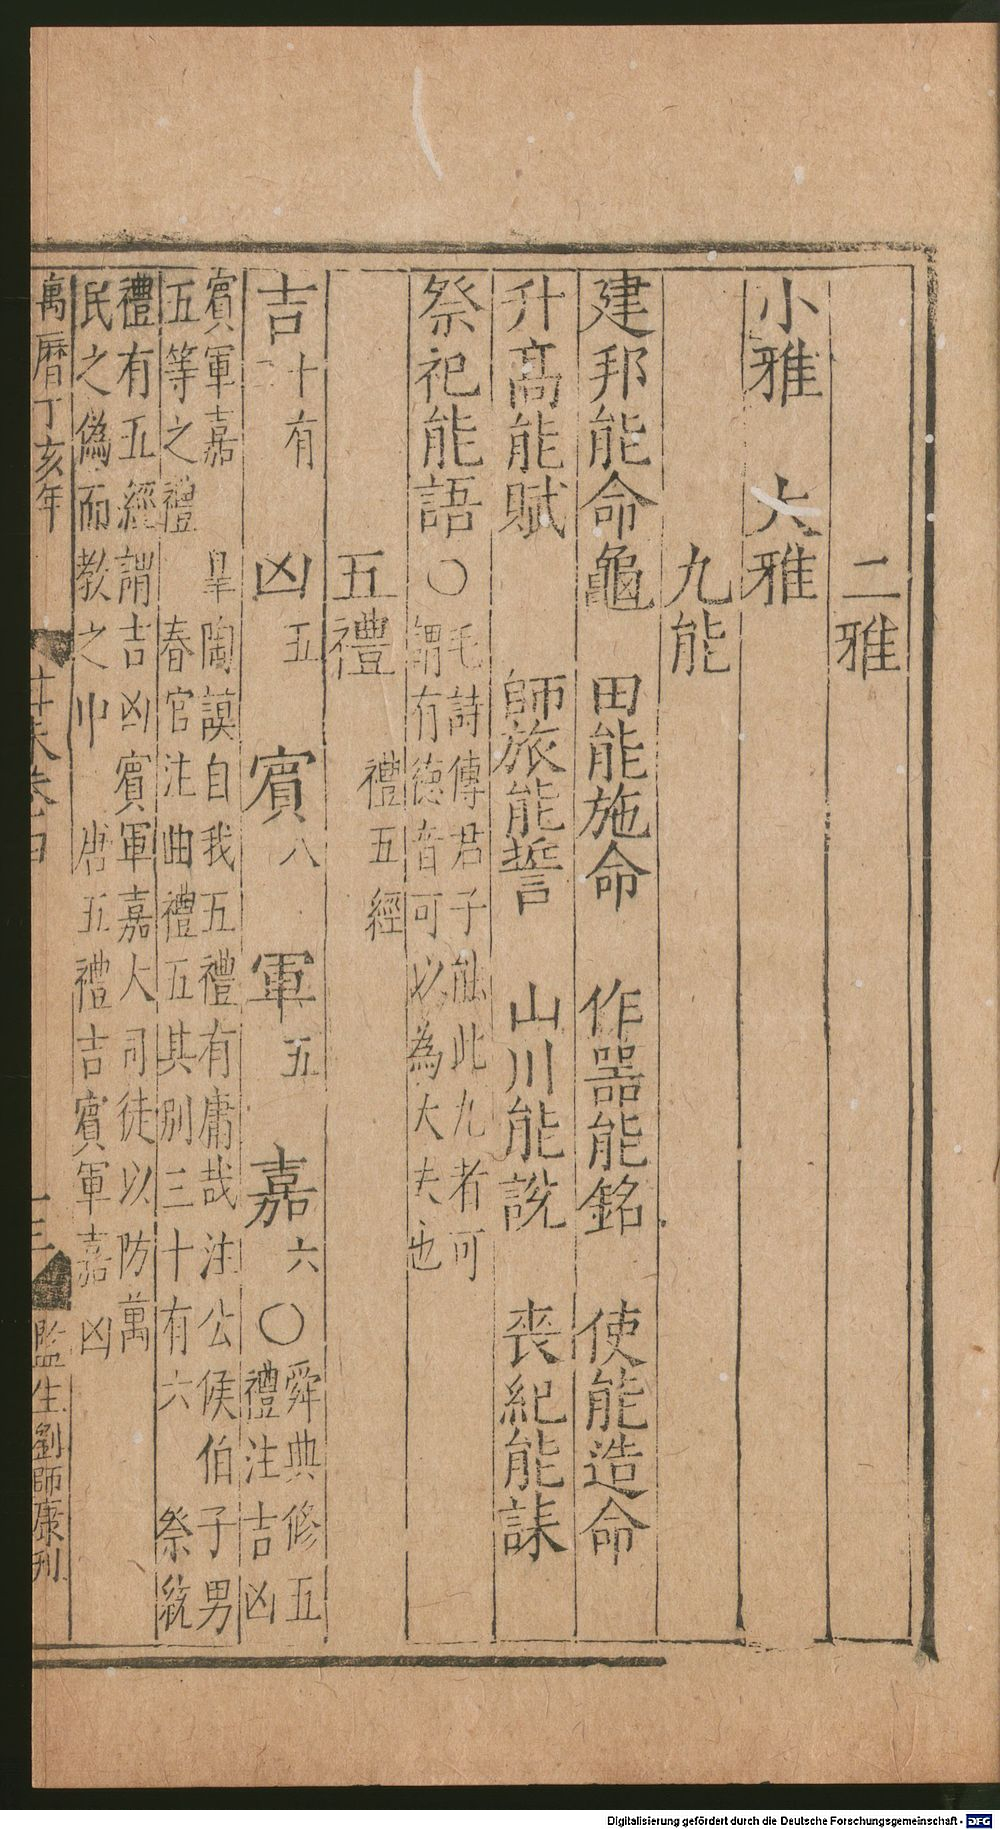 二雅
小雅　大雅
九能
建邦能命龜　田能施命　作器能銘　使能造命
升高能賦　師旅能誓　山川能說　喪紀能誄
祭祀能語〇毛詩傳君子能此九者可
謂有德音可以為大夫也
五禮　禮五經
吉十有二　凶五　賓八　軍五　嘉六〇舜典修五
禮注吉凶
賓軍嘉　皐陶謨自我五禮有庸哉注公侯伯子男
五等之禮　春官注曲禮五其別三十有六　祭統
禮有五經謂吉凶賓軍嘉大司徒以防萬
民之偽而教之中　唐五禮吉賓軍嘉凶
萬曆丁亥年
監生劉師康刊
Digitalisierung gefördert durch die Deutsche Forschungsgemeinschaft - DFG